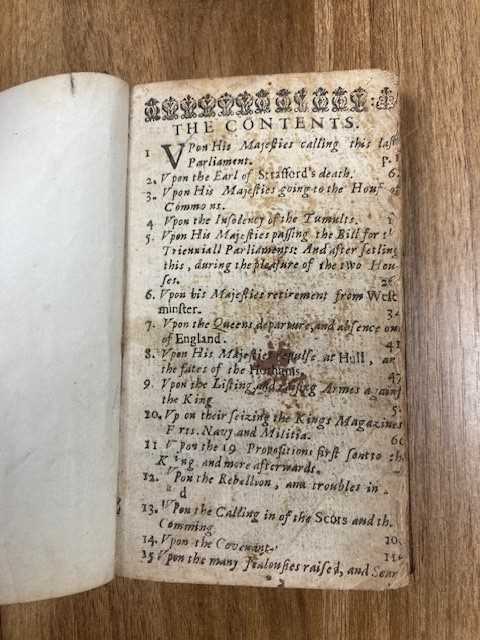 THE CONTENTS.
1 VPon His Majeſties calling this laſt
Parliament. p. 1
2. Vpon the Earl of Strafford's death. 6
3. Vpon His Majeſties going to the Houſ of
Commons.
4 Vpon the Inſolency of the Tumults.
5. Vpon His Majeſties paſſing the Bill for
Trienniall Parliaments: And after ſetling
this, during the pleaſure of the two Hou-
ſes.
6. Vpon his Majeſties retirement from Weſt
minſter.
7. Vpon the Queens departure, and abſence ou
of England. 41
8. Vpon His Majeſties repulſe at Hull, an
the fates of the Hothams. 47
9. Vpon the Liſting, and raiſing Armes againſ
the King 5
10. Vp on their ſeizing the Kings Magazines
F rts. Navy and Militia. 60
11 Vpon the 19 Propoſitions firſt ſent to th
K ing and more afterwards.
12. Vpon the Rebellion, and troubles in
d
13. Vpon the Calling in of the Scots and th
Comming
14. Vpon the Covenant. 10
15 Vpon the many Jealouſies raiſed, and Scan